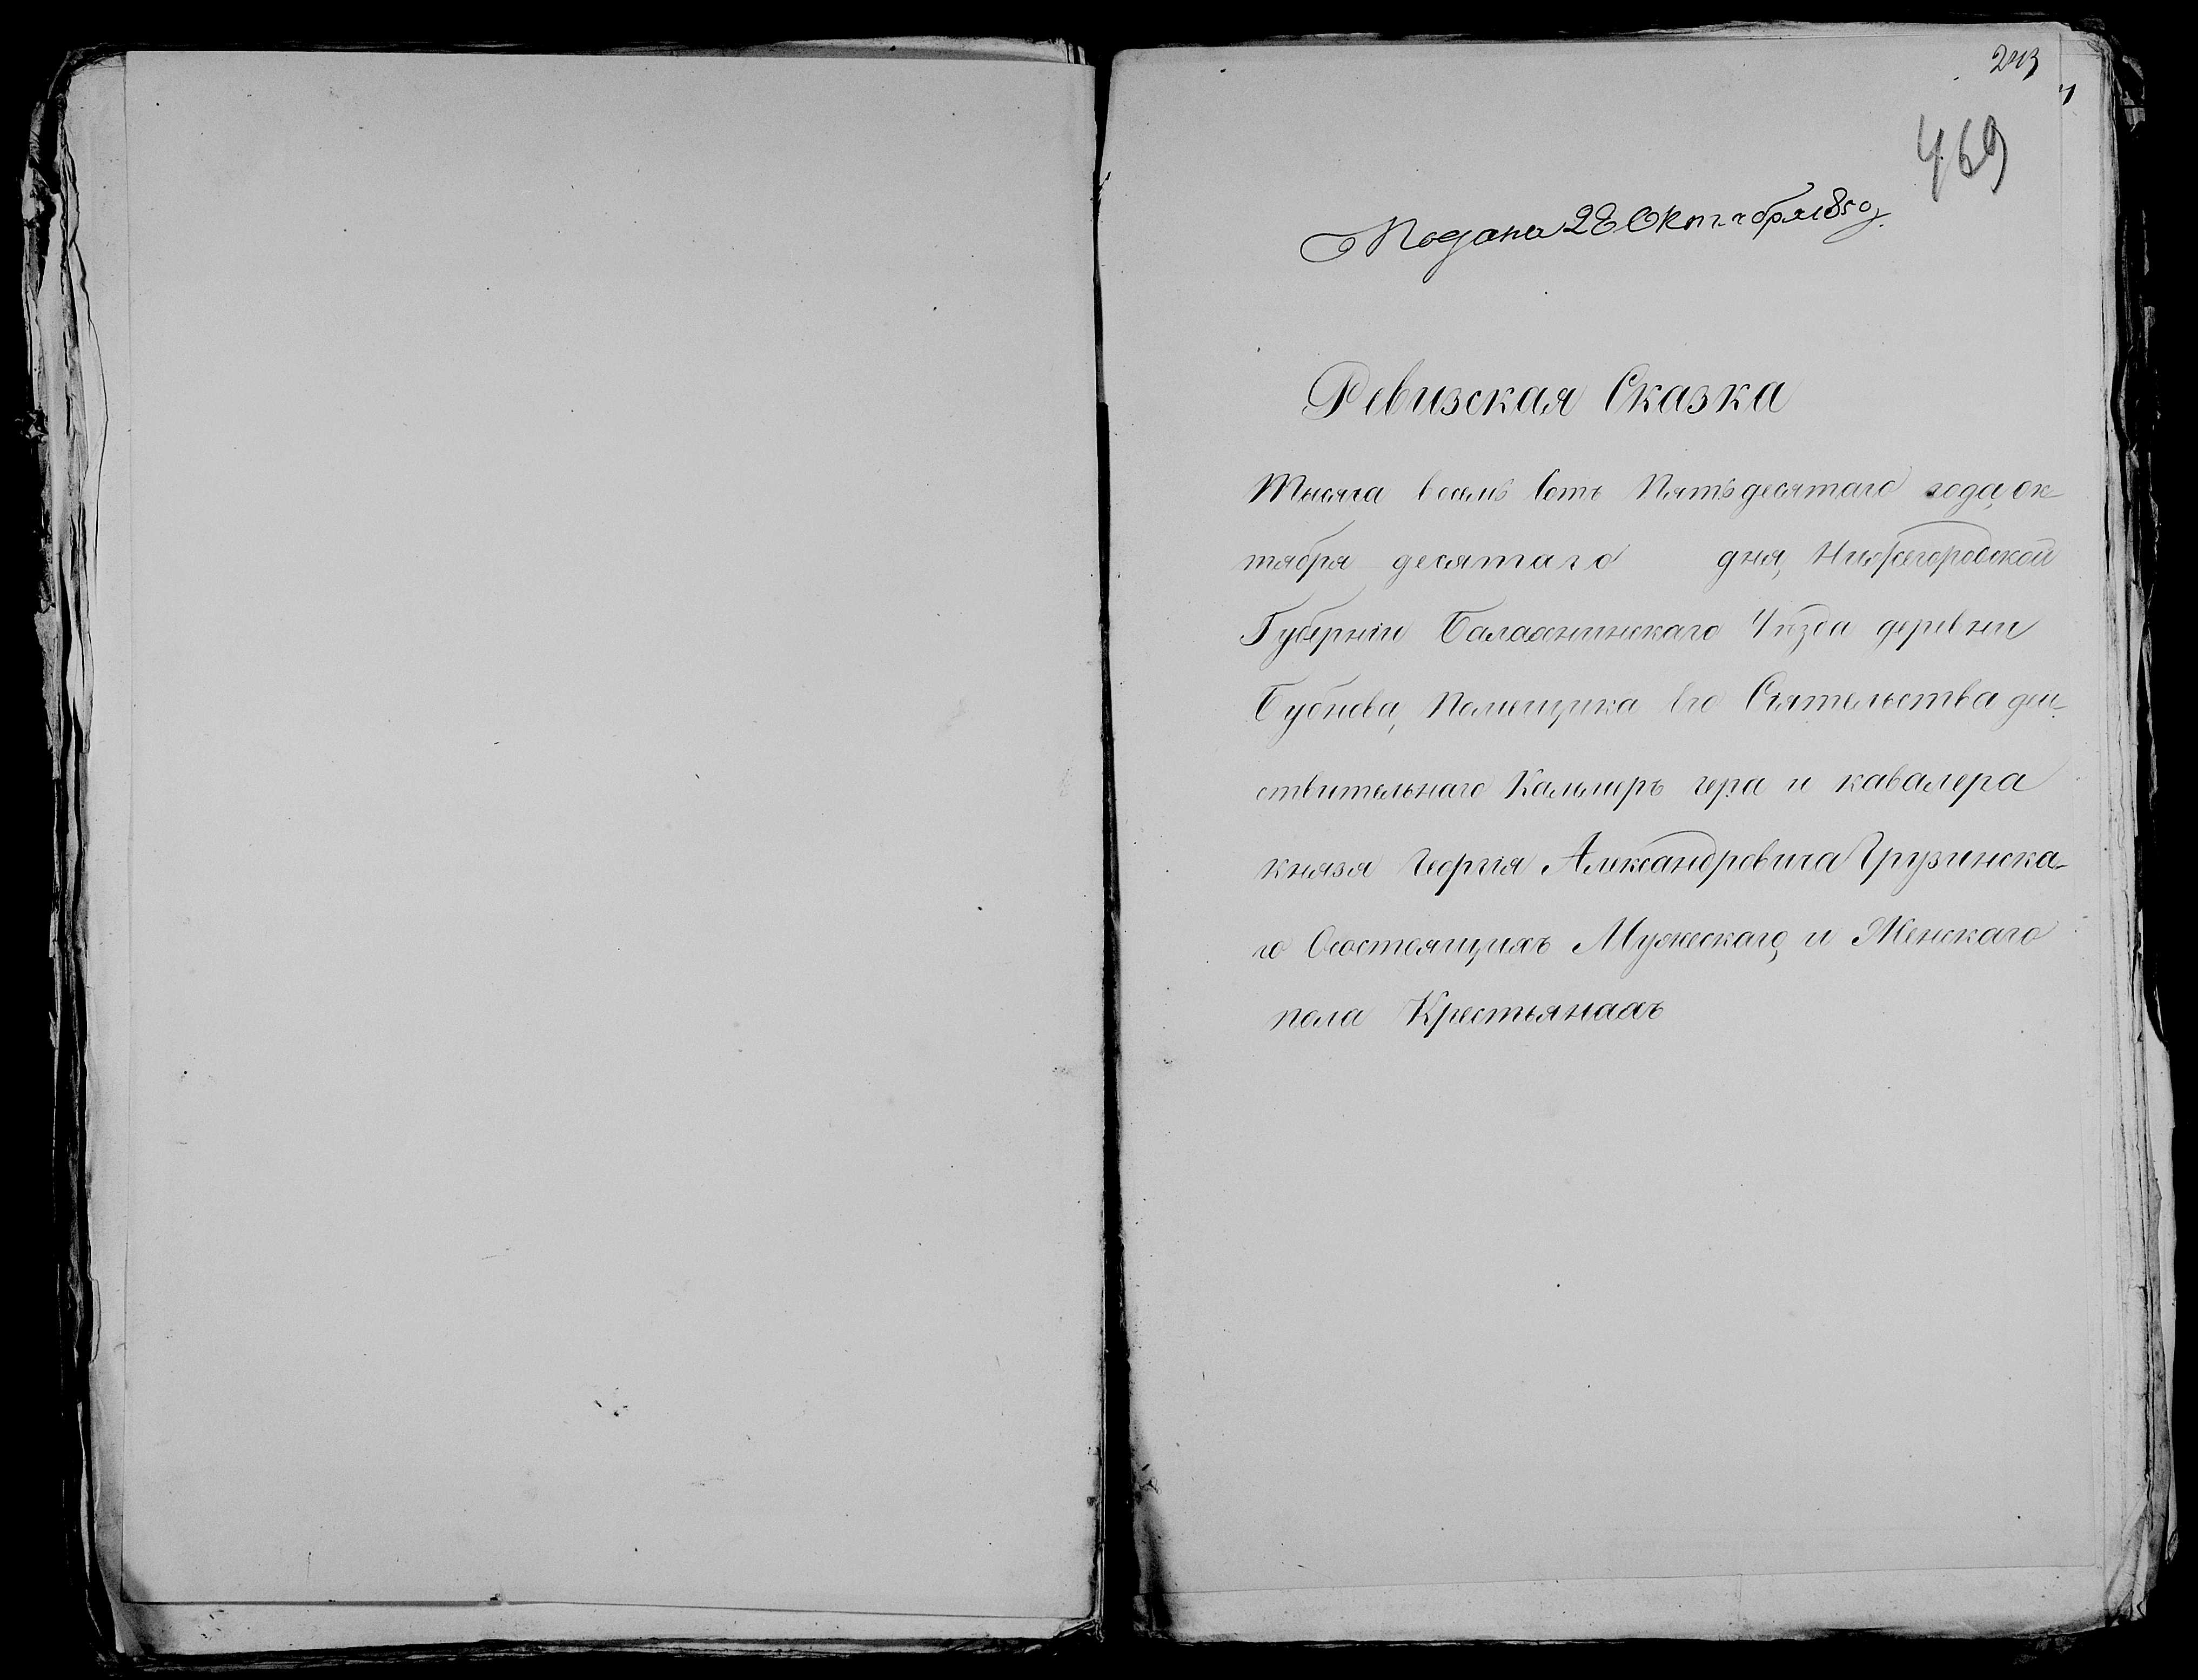 243
469
Подана 28 Октября 1850 г.
Ревизская Сказка
Тысяча восемь сотъ Пятьдесятаго года, ок-
тября десятаго дня, Нижегородской
Губернiи Балахнинскаго Уѣзда деревни
Бубнова, Помещика Его Сiятельства деи-
ствительнаго Камъмеръ гера и кавалера
князя Георгiя Александровича Грузинска-
го Осостоящихъ Мужескаго, и Женскаго
пола Крестьянахъ